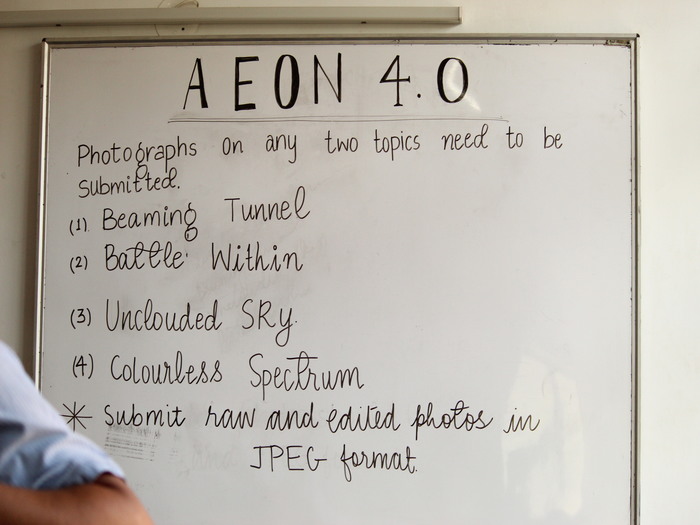 AEON 4.0
Photographs on any two topics need to be
submitted.
(1). Beaming Tunnel
(2) Battle Within
(3) Unclouded SKy.
(4) Colourless Spectrum
* Submit raw and edited photos in
JPEG format.